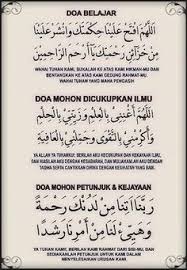 DOA BELAJAR
اَللّٰهُمَّ افْتَحْ عَلَيْنَا حِكْمَتَكَ وَانْشُرْ عَلَيْنَا
مِنْ خَزَائِنِ رَحْمَتِكَ يَا أَرْحَمَ الرَّاحِمِينَ
WAHAI TUHAN KAMI, BUKALAH KE ATAS KAMI HIKMAH-MU DAN
BENTANGKAN KE ATAS KAMI GEDUNG RAHMAT-MU
WAHAI TUHAN YANG MAHA PENGASIH
DOA MOHON DICUKUPKAN ILMU
اَللّٰهُمَّ أَغْنِنِي بِالْعِلْمِ وَزَيِّنِّي بِالْحِلْمِ
وَأَكْرِمْنِي بِالتَّقْوَى وَجَمِّلْنِي بِالْعَافِيَةِ
YA ALLAH YA TUHANKU, BERILAH AKU KECUKUPAN DAN KEKAYAAN ILMU,
DAN HIASILAH DIRIKU DENGAN KESABARAN, MULIAKANLAH AKU DENGAN
TAQWA SERTA CANTIKKAN DIRIKU DENGAN KESIHATAN YANG BAIK.
DOA MOHON PETUNJUK & KEJAYAAN
رَبَّنَا آتِنَا مِنْ لَدُنْكَ رَحْمَةً
وَهَيِّئْ لَنَا مِنْ أَمْرِنَا رَشَدًا
YA TUHAN KAMI, BERILAH KAMI RAHMAT DARI SISI-MU, DAN
SEDIAKANLAH PETUNJUK UNTUK KAMI DALAM
MENYELESAIKAN URUSAN KAMI.